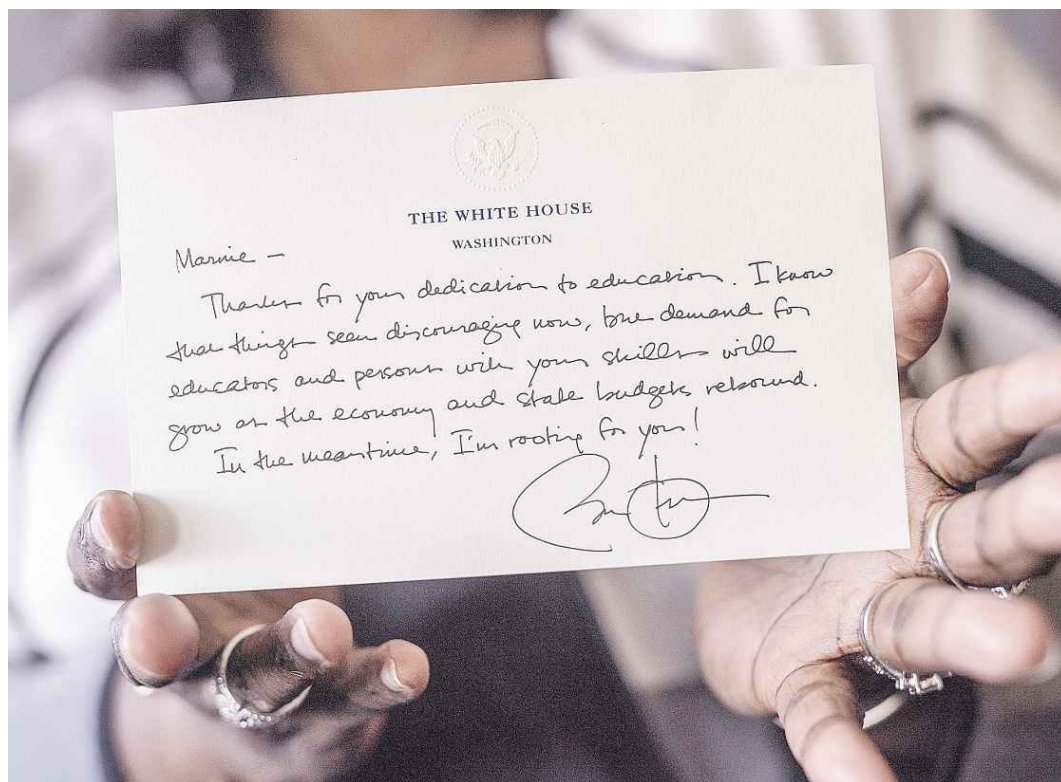 THE WHITE HOUSE
WASHINGTON
Marnie –
Thanks for your dedication to education. I know
that things seem discouraging now, but demand for
educators and persons with your skills will
grow as the economy and state budgets rebound.
In the meantime, I'm rooting for you!